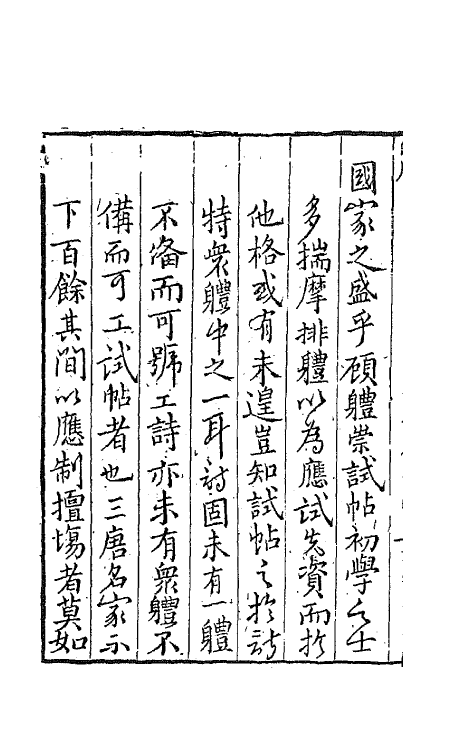 國家之盛乎顧體崇試帖初學之士
多揣摩排體以為應試先資而於
他格或有未遑豈知試帖之於詩
特衆體中之一耳詩固未有一體
不俻而可號工詩亦未有衆體不
備而可工試帖者也三唐名家不
下百餘其間以應制擅塲者莫如